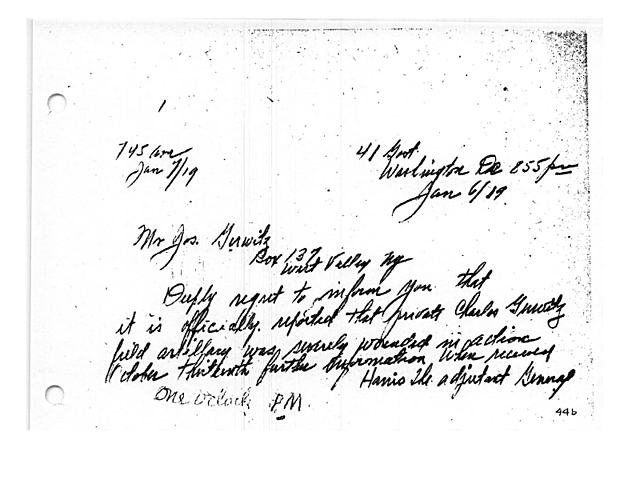 745 am
Jan 7/19
41 Govt
Washington DC 855 pm
Jan 6/19
Mr Jos. Gerwitz
Box 137
West Valley NY
Deeply regret to inform you that
it is officially reported that private Charles Gerwitz
field artillery was severely wounded in action
October thirteenth further information when received
Harris The adjutant General
One o'clock PM.
446